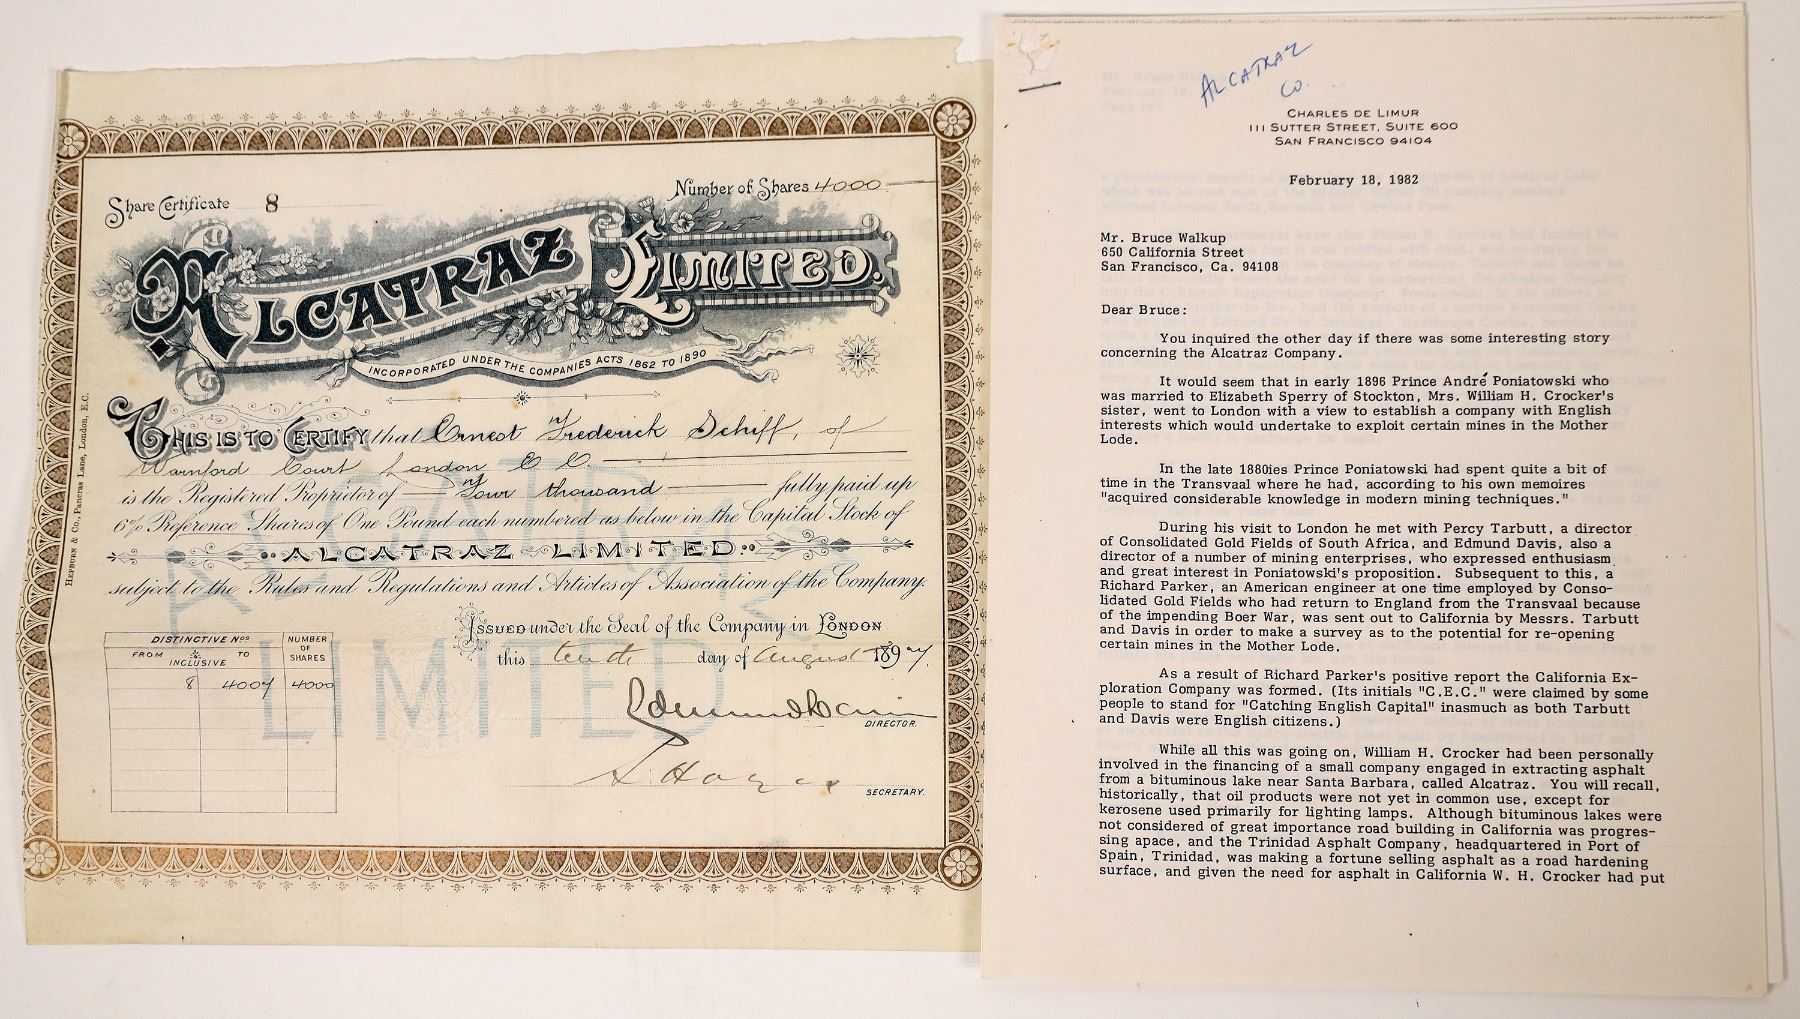 Share Certificate 8
Number of Shares 4000
ALCATRAZ LIMITED.
INCORPORATED UNDER THE COMPANIES ACTS 1862 TO 1890
THIS IS TO CERTIFY that Ernest Frederick Schiff, of
Warnford Court London E C
is the Registered Proprietor of Four thousand fully paid up
6% Preference Shares of One Pound each numbered as below in the Capital Stock of
ALCATRAZ LIMITED
subject to the Rules and Regulations and Articles of Association of the Company.
ISSUED under the Seal of the Company in LONDON
this tenth day of August 1897.
DISTINCTIVE Nos
NUMBER OF SHARES
FROM TO
INCLUSIVE
8 4007 4000
Edmund Davis
DIRECTOR.
SECRETARY.
HEPBURN & Co., Pancras Lane, London, E.C.
ALCATRAZ LIMITED
ALCATRAZ
CO.
CHARLES DE LIMUR
111 SUTTER STREET, SUITE 600
SAN FRANCISCO 94104
February 18, 1982
Mr. Bruce Walkup
650 California Street
San Francisco, Ca. 94108
Dear Bruce:
You inquired the other day if there was some interesting story
concerning the Alcatraz Company.
It would seem that in early 1896 Prince André Poniatowski who
was married to Elizabeth Sperry of Stockton, Mrs. William H. Crocker's
sister, went to London with a view to establish a company with English
interests which would undertake to exploit certain mines in the Mother
Lode.
In the late 1880ies Prince Poniatowski had spent quite a bit of
time in the Transvaal where he had, according to his own memoires
"acquired considerable knowledge in modern mining techniques."
During his visit to London he met with Percy Tarbutt, a director
of Consolidated Gold Fields of South Africa, and Edmund Davis, also a
director of a number of mining enterprises, who expressed enthusiasm
and great interest in Poniatowski's proposition. Subsequent to this, a
Richard Parker, an American engineer at one time employed by Conso-
lidated Gold Fields who had return to England from the Transvaal because
of the impending Boer War, was sent out to California by Messrs. Tarbutt
and Davis in order to make a survey as to the potential for re-opening
certain mines in the Mother Lode.
As a result of Richard Parker's positive report the California Ex-
ploration Company was formed. (Its initials "C.E.C." were claimed by some
people to stand for "Catching English Capital" inasmuch as both Tarbutt
and Davis were English citizens.)
While all this was going on, William H. Crocker had been personally
involved in the financing of a small company engaged in extracting asphalt
from a bituminous lake near Santa Barbara, called Alcatraz. You will recall,
historically, that oil products were not yet in common use, except for
kerosene used primarily for lighting lamps. Although bituminous lakes were
not considered of great importance road building in California was progres-
sing apace, and the Trinidad Asphalt Company, headquartered in Port of
Spain, Trinidad, was making a fortune selling asphalt as a road hardening
surface, and given the need for asphalt in California W. H. Crocker had put